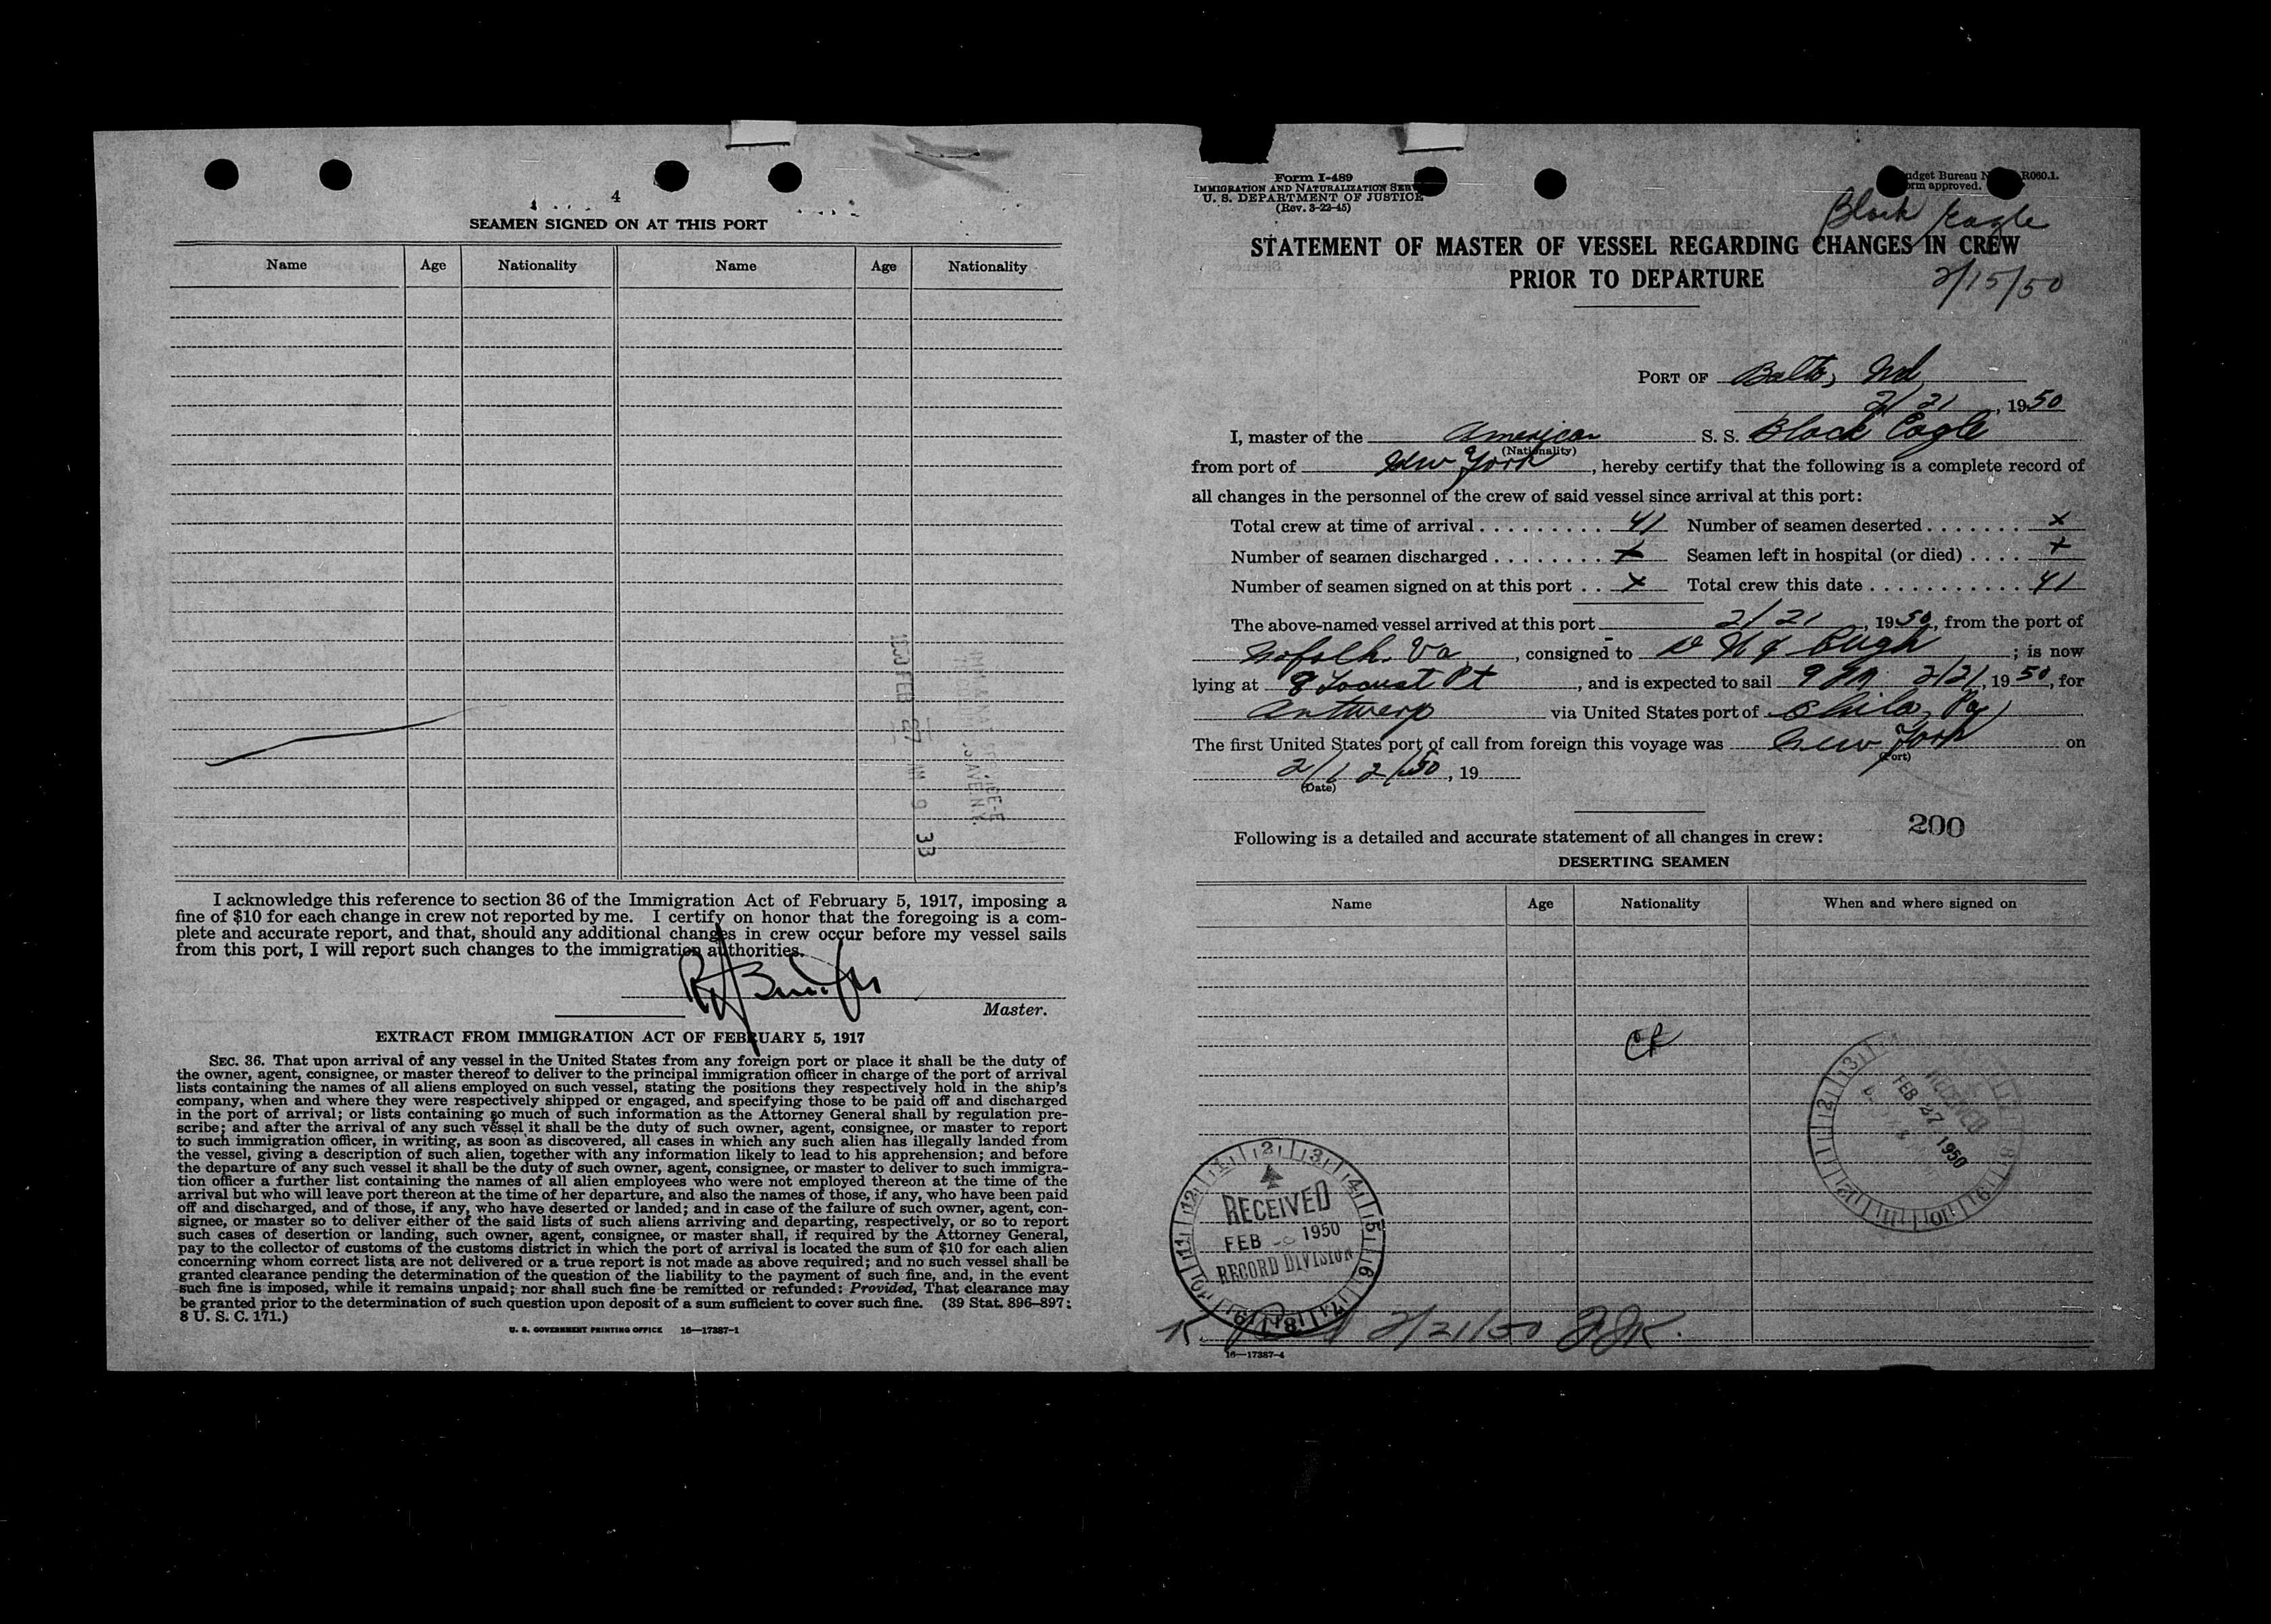 4
SEAMEN SIGNED ON AT THIS PORT
Name Age Nationality Name Age Nationality
I acknowledge this reference to section 36 of the Immigration Act of February 5, 1917, imposing a
fine of $10 for each change in crew not reported by me. I certify on honor that the foregoing is a com-
plete and accurate report, and that, should any additional changes in crew occur before my vessel sails
from this port, I will report such changes to the immigration authorities.
Master.
EXTRACT FROM IMMIGRATION ACT OF FEBRUARY 5, 1917
SEC. 36. That upon arrival of any vessel in the United States from any foreign port or place it shall be the duty of
the owner, agent, consignee, or master thereof to deliver to the principal immigration officer in charge of the port of arrival
lists containing the names of all aliens employed on such vessel, stating the positions they respectively hold in the ship's
company, when and where they were respectively shipped or engaged, and specifying those to be paid off and discharged
in the port of arrival; or lists containing so much of such information as the Attorney General shall by regulation pre-
scribe; and after the arrival of any such vessel it shall be the duty of such owner, agent, consignee, or master to report
to such immigration officer, in writing, as soon as discovered, all cases in which any such alien has illegally landed from
the vessel, giving a description of such alien, together with any information likely to lead to his apprehension; and before
the departure of any such vessel it shall be the duty of such owner, agent, consignee, or master to deliver to such immigra-
tion officer a further list containing the names of all alien employees who were not employed thereon at the time of the
arrival but who will leave port thereon at the time of her departure, and also the names of those, if any, who have been paid
off and discharged, and of those, if any, who have deserted or landed; and in case of the failure of such owner, agent, con-
signee, or master so to deliver either of the said lists of such aliens arriving and departing, respectively, or so to report
such cases of desertion or landing, such owner, agent, consignee, or master shall, if required by the Attorney General,
pay to the collector of customs of the customs district in which the port of arrival is located the sum of $10 for each alien
concerning whom correct lists are not delivered or a true report is not made as above required; and no such vessel shall be
granted clearance pending the determination of the question of the liability to the payment of such fine, and, in the event
such fine is imposed, while it remains unpaid; nor shall such fine be remitted or refunded: Provided, That clearance may
be granted prior to the determination of such question upon deposit of a sum sufficient to cover such fine. (39 Stat. 896–897;
8 U. S. C. 171.)
U. S. GOVERNMENT PRINTING OFFICE 16—17387-1
Form I-489
IMMIGRATION AND NATURALIZATION
U. S. DEPARTMENT OF JUSTICE
(Rev. 3-22-45)
Budget Bureau R060.1.
Form approved.
Black Eagle
STATEMENT OF MASTER OF VESSEL REGARDING CHANGES IN CREW
PRIOR TO DEPARTURE
2/15/50
PORT OF Balto, Md
2/21, 1950
I, master of the American S. S. Black Eagle
(Nationality)
from port of New York, hereby certify that the following is a complete record of
all changes in the personnel of the crew of said vessel since arrival at this port:
Total crew at time of arrival 41 Number of seamen deserted x
Number of seamen discharged x Seamen left in hospital (or died) x
Number of seamen signed on at this port x Total crew this date 41
The above-named vessel arrived at this port 2/21, 1950, from the port of
Norfolk, Va, consigned to ; is now
lying at 8 Locust Pt, and is expected to sail 9 2/21, 1950, for
Antwerp via United States port of Phila, Pa
The first United States port of call from foreign this voyage was New York on
(Port)
2/12/50, 19
(Date)
Following is a detailed and accurate statement of all changes in crew:
200
DESERTING SEAMEN
Name Age Nationality When and where signed on
RECEIVED
FEB 27 1950
RECEIVED
FEB 1950
RECORD DIVISION
2/21/50
16—17387-4